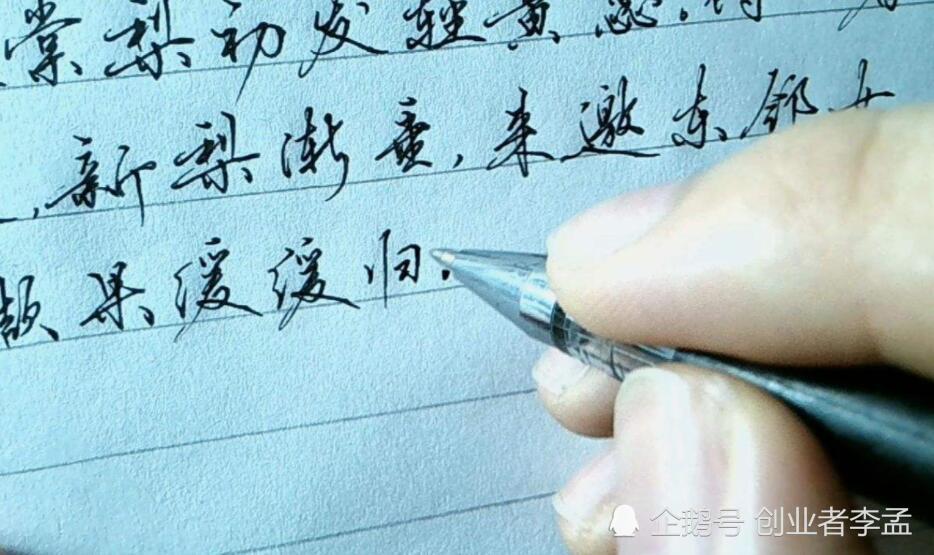 棠梨初发轻黄蕊
,新梨渐重,来邀东邻女
颔果缓缓归.
企鹅号 创业者李孟